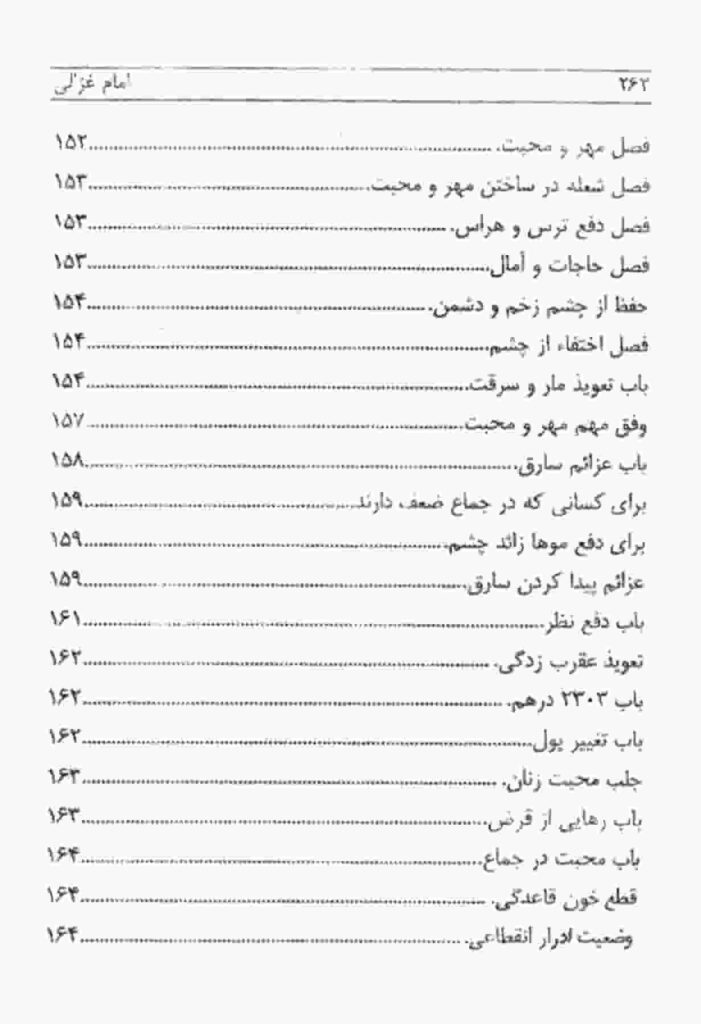 ۲۶۲ امام غزالی
فصل مهر و محبت. ۱۵۲
فصل شعله در ساختن مهر و محبت. ۱۵۳
فصل دفع ترس و هراس. ۱۵۳
فصل حاجات و آمال. ۱۵۳
حفظ از چشم زخم و دشمن. ۱۵۴
فصل اختفاء از چشم. ۱۵۴
باب تعویذ مار و سرقت. ۱۵۴
وفق مهم مهر و محبت. ۱۵۷
باب عزائم سارق. ۱۵۸
برای کسانی که در جماع ضعف دارند. ۱۵۹
برای دفع موها زائد چشم. ۱۵۹
عزائم پیدا کردن سارق. ۱۵۹
باب دفع نظر. ۱۶۱
تعویذ عقرب زدگی. ۱۶۲
باب ۲۳۰۳ درهم. ۱۶۲
باب تغییر پول. ۱۶۲
جلب محبت زنان. ۱۶۳
باب رهایی از قرض. ۱۶۳
باب محبت در جماع. ۱۶۴
قطع خون قاعدگی. ۱۶۴
وضعیت ادرار انقطاعی. ۱۶۴